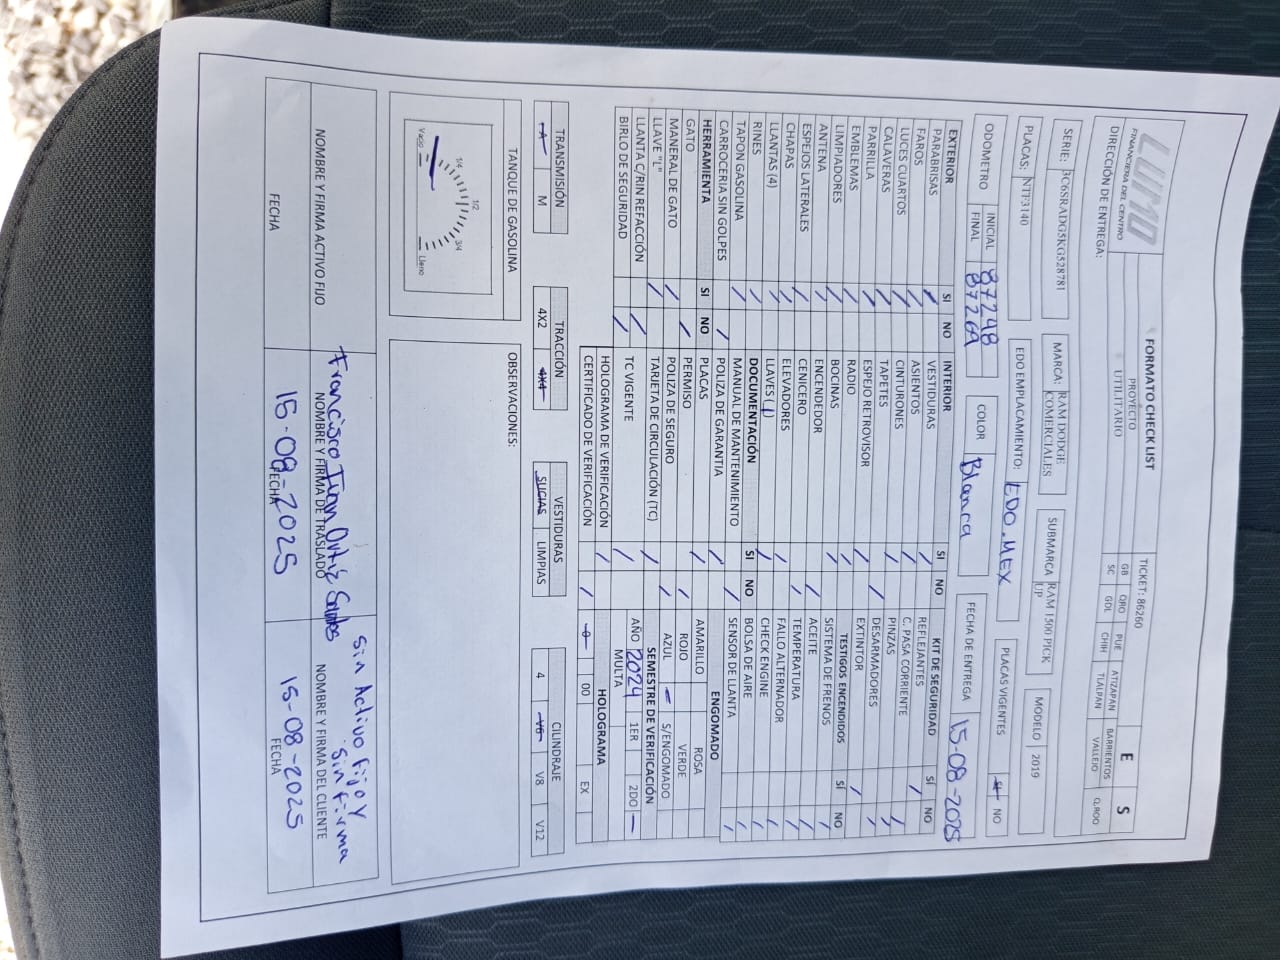 LUMO
FINANCIERA DEL CENTRO
FORMATO CHECK LIST
PROYECTO
UTILITARIO
TICKET: 86260
GB QRO PUE ATIZAPAN BARRIENTOS Q.ROO
SC GDL CHIH TLALPAN VALLEJO
E S
DIRECCIÓN DE ENTREGA:
SERIE: 3C6SRADG5KG528781 MARCA: RAM DODGE COMERCIALES SUBMARCA RAM 1500 PICK UP MODELO 2019
PLACAS: NTF3140 EDO EMPLACAMIENTO: EDO. MEX PLACAS VIGENTES SI NO
ODOMETRO INICIAL 87248
FINAL 87269
COLOR Blanca FECHA DE ENTREGA 15-08-2025
EXTERIOR SI NO
PARABRISAS /
FAROS /
LUCES CUARTOS /
CALAVERAS /
PARRILLA /
EMBLEMAS /
LIMPIADORES /
ANTENA /
ESPEJOS LATERALES /
CHAPAS /
LLANTAS (4) /
RINES /
TAPON GASOLINA /
CARROCERIA SIN GOLPES /
HERRAMIENTA SI NO
GATO /
MANERAL DE GATO /
LLAVE "L" /
LLANTA C/RIN REFACCIÓN /
BIRLO DE SEGURIDAD /
INTERIOR SI NO
VESTIDURAS /
ASIENTOS /
CINTURONES /
TAPETES /
ESPEJO RETROVISOR /
RADIO /
BOCINAS /
ENCENDEDOR /
CENICERO /
ELEVADORES /
LLAVES (1) /
DOCUMENTACIÓN SI NO
MANUAL DE MANTENIMIENTO /
POLIZA DE GARANTIA /
PLACAS /
PERMISO /
POLIZA DE SEGURO /
TARJETA DE CIRCULACIÓN (TC) /
TC VIGENTE /
HOLOGRAMA DE VERIFICACIÓN /
CERTIFICADO DE VERIFICACIÓN /
KIT DE SEGURIDAD SÍ NO
REFLEJANTES /
C. PASA CORRIENTE /
PINZAS /
DESARMADORES /
EXTINTOR /
TESTIGOS ENCENDIDOS SÍ NO
SISTEMA DE FRENOS /
ACEITE /
TEMPERATURA /
FALLO ALTERNADOR /
CHECK ENGINE /
BOLSA DE AIRE /
SENSOR DE LLANTA /
ENGOMADO
AMARILLO ROSA
ROJO VERDE
AZUL — S/ENGOMADO
SEMESTRE DE VERIFICACIÓN
AÑO 2024 1ER 2DO —
MULTA
HOLOGRAMA
0 00 EX
TRANSMISIÓN
A M
TRACCIÓN
4X2 4X4
VESTIDURAS
SUCIAS LIMPIAS
CILINDRAJE
4 V6 V8 V12
TANQUE DE GASOLINA
Vacio 1/4 1/2 3/4 Lleno
OBSERVACIONES:
Francisco Ivan Ortiz
Sin Activo fijo y
sin firma
NOMBRE Y FIRMA ACTIVO FIJO
NOMBRE Y FIRMA DE TRASLADO
NOMBRE Y FIRMA DEL CLIENTE
15-08-2025
15-08-2025
FECHA
FECHA
FECHA